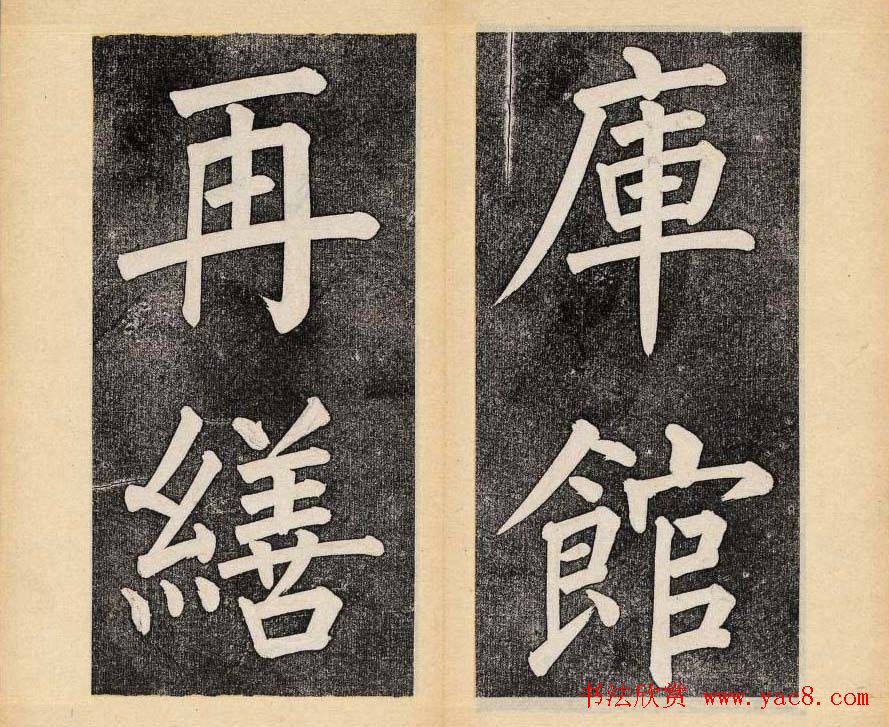 庫館
再繕
书法欣赏 www.yac8.com